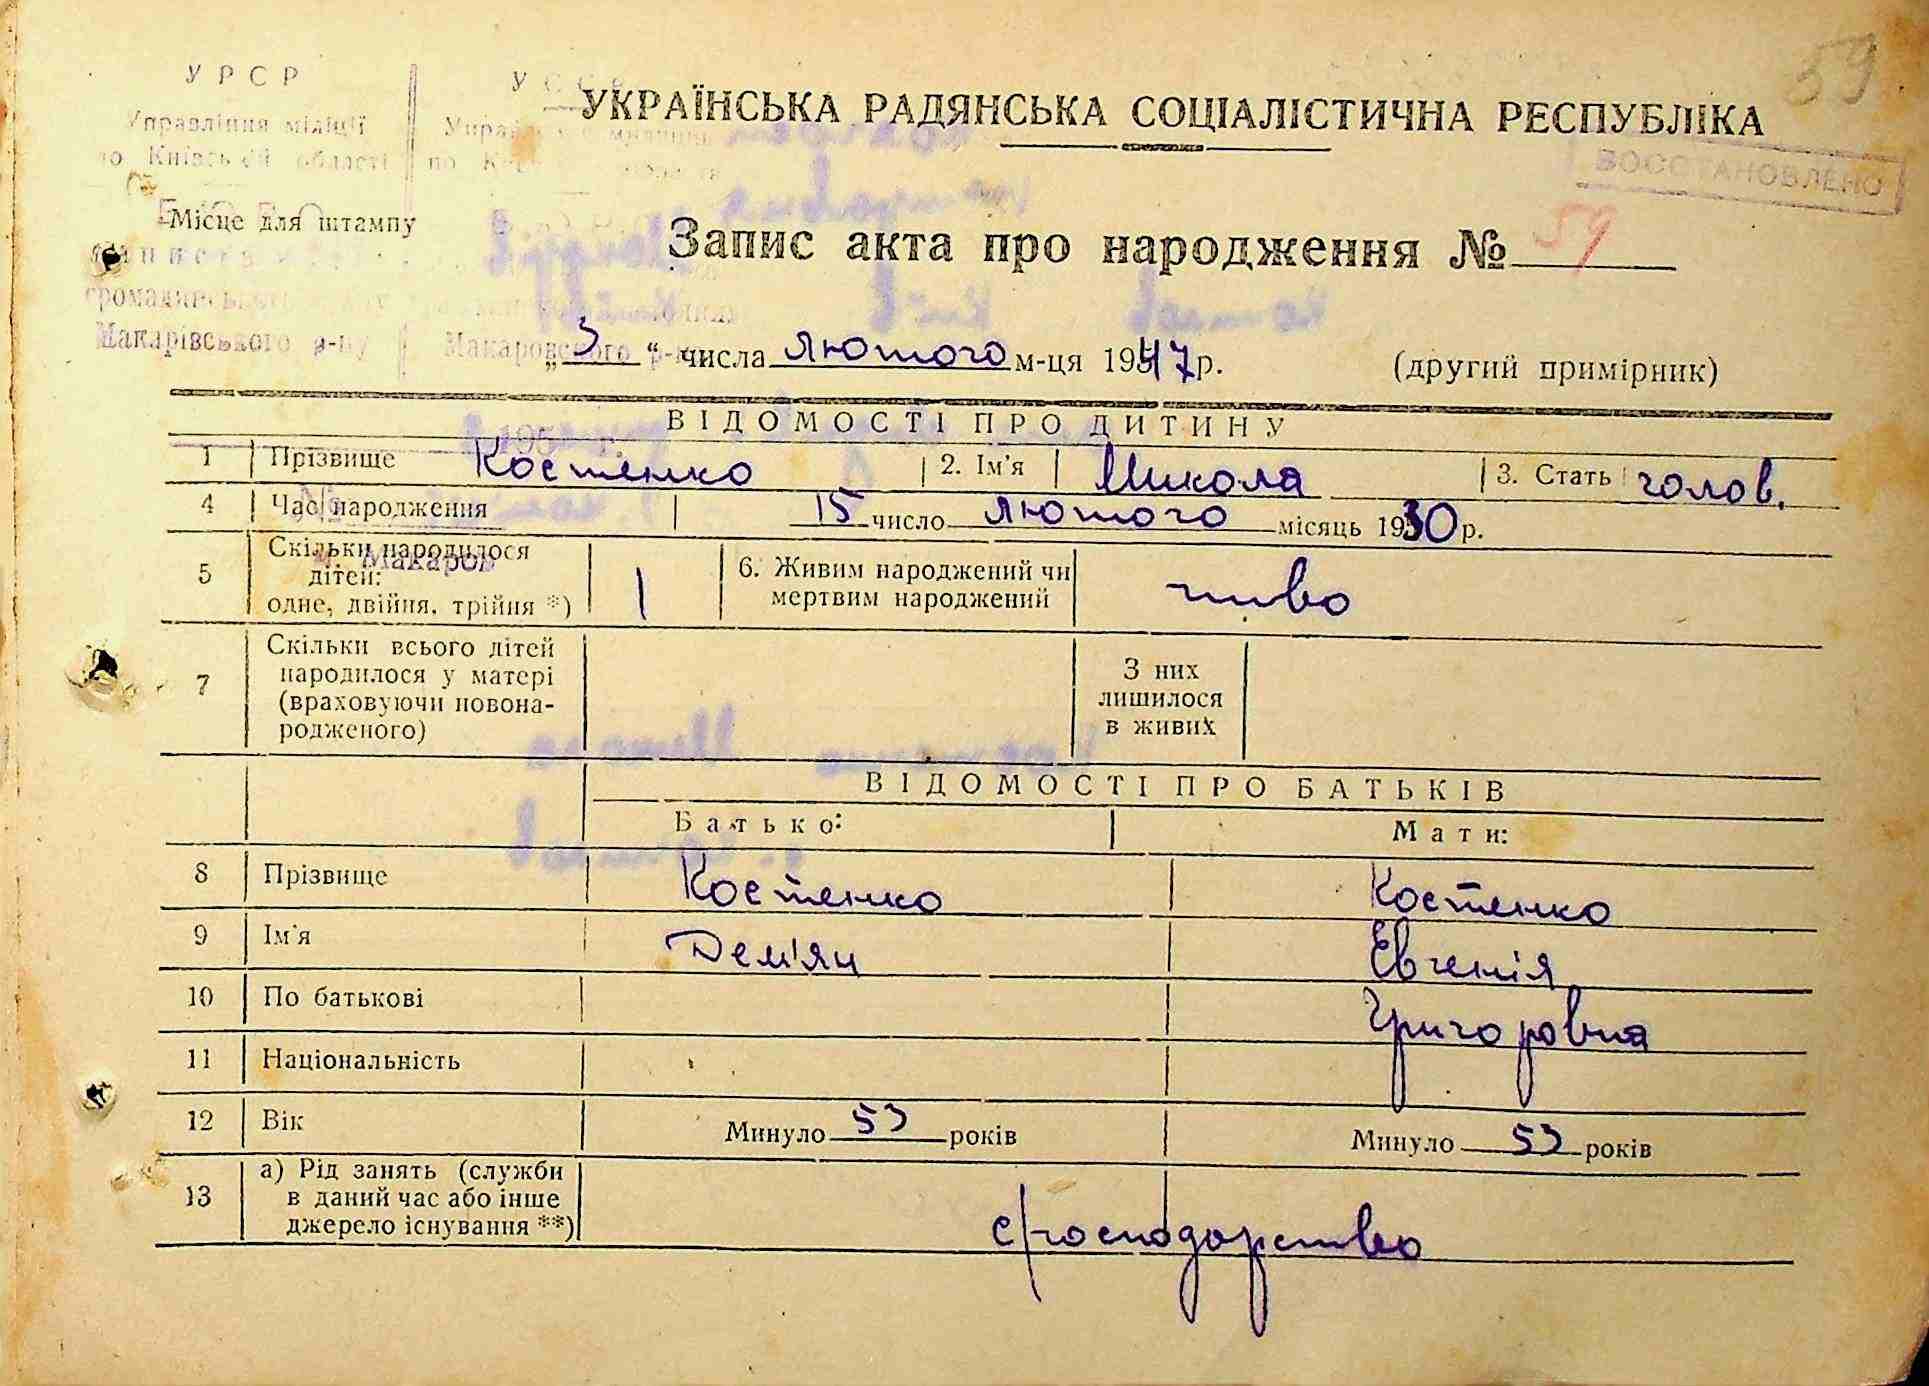 59
УРСР
УКРАЇНСЬКА РАДЯНСЬКА СОЦІАЛІСТИЧНА РЕСПУБЛІКА
Управління міліції
по Київській області
ВОССТАНОВЛЕНО
Місце для штампу
Запис акта про народження № 59
Макарівського р-ну Макаровского р-на
„3“ числа лютого м-ця 1947 р. (другий примірник)
ВІДОМОСТІ ПРО ДИТИНУ
1 Прізвище Костенко 2. Ім'я Микола 3. Стать голов.
4 Час народження 15 число лютого місяць 1930 р.
5 Скільки народилося дітей: одне, двійня, трійня *) 1 6. Живим народжений чи мертвим народжений живо
м. Макаров
7 Скільки всього дітей народилося у матері (враховуючи новона-родженого) З них лишилося в живих
ВІДОМОСТІ ПРО БАТЬКІВ
Батько: Мати:
8 Прізвище Костенко Костенко
9 Ім'я Дем'ян Евгенія
10 По батькові Григоровна
11 Національність
12 Вік Минуло 53 років Минуло 53 років
13 а) Рід занять (служби в даний час або інше джерело існування **) с/господарство